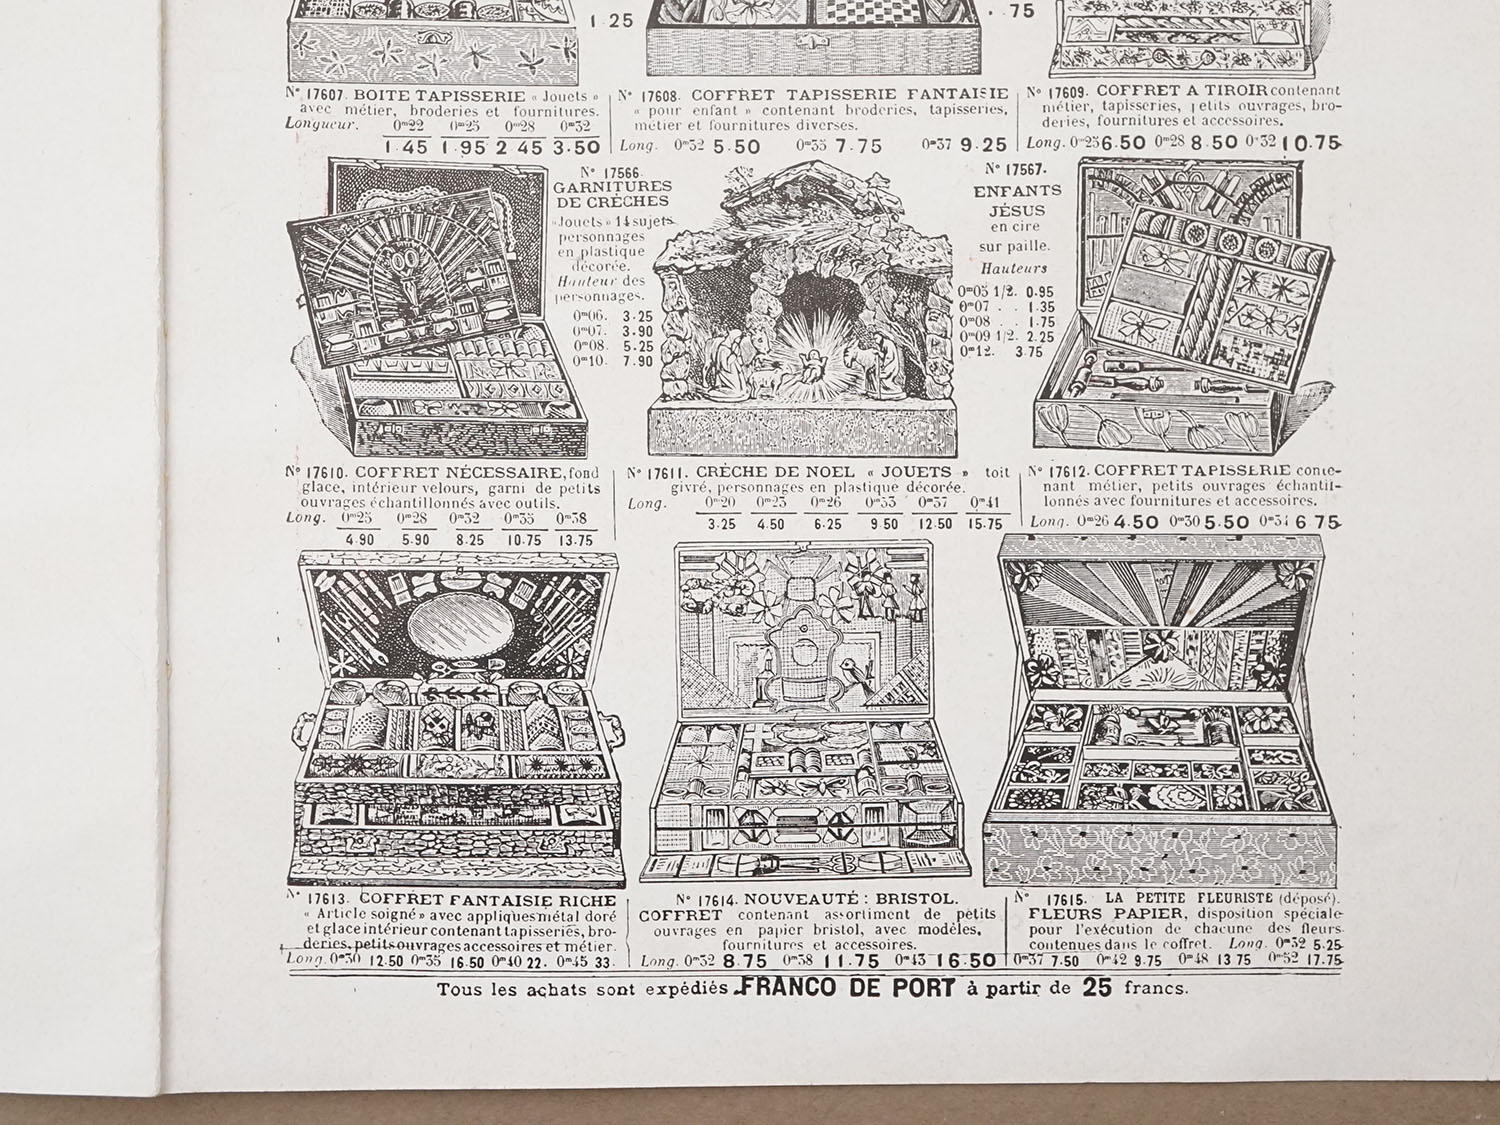 1 25
. . 75
N° 17607. BOITE TAPISSERIE « Jouets »
avec métier, broderies et fournitures.
Longueur. 0m22 0m25 0m28 0m32
1.45 1.95 2 45 3.50
N° 17608. COFFRET TAPISSERIE FANTAISIE
« pour enfant » contenant broderies, tapisseries,
métier et fournitures diverses.
Long. 0m32 5.50 0m35 7.75 0m37 9.25
N° 17609. COFFRET A TIROIR contenant
métier, tapisseries, petits ouvrages, bro-
deries, fournitures et accessoires.
Long. 0m25 6.50 0m28 8.50 0m32 10.75
N° 17566.
GARNITURES
DE CRÈCHES
«Jouets» 14 sujets
personnages
en plastique
décorée.
Hauteur des
personnages.
0m06. 3.25
0m07. 3.90
0m08. 5.25
0m10. 7.90
N° 17567.
ENFANTS
JÉSUS
en cire
sur paille.
Hauteurs
0m05 1/2. 0.95
0m07 . . 1.35
0m08 . . 1.75
0m09 1/2. 2.25
0m12. 3.75
N° 17610. COFFRET NÉCESSAIRE, fond
glace, intérieur velours, garni de petits
ouvrages échantillonnés avec outils.
Long. 0m25 0m28 0m32 0m35 0m38
4.90 5.90 8.25 10.75 13.75
N° 17611. CRÈCHE DE NOEL « JOUETS » toit
givré, personnages en plastique décorée.
Long. 0m20 0m23 0m26 0m33 0m37 0m41
3.25 4.50 6.25 9.50 12.50 15.75
N° 17612. COFFRET TAPISSERIE conte-
nant métier, petits ouvrages échantil-
lonnés avec fournitures et accessoires.
Long. 0m26 4.50 0m30 5.50 0m34 6 75
N° 17613. COFFRET FANTAISIE RICHE
« Article soigné » avec appliques métal doré
et glace intérieur contenant tapisseries, bro-
deries, petits ouvrages accessoires et métier.
Long. 0m30 12.50 0m35 16.50 0m40 22. 0m45 33.
N° 17614. NOUVEAUTÉ : BRISTOL.
COFFRET contenant assortiment de petits
ouvrages en papier bristol, avec modèles,
fournitures et accessoires.
Long. 0m32 8.75 0m38 11.75 0m43 16.50
N° 17615. LA PETITE FLEURISTE (déposé).
FLEURS PAPIER, disposition spéciale
pour l'exécution de chacune des fleurs
contenues dans le coffret. Long. 0m32 5.25
0m37 7.50 0m42 9.75 0m48 13 75 0m52 17.75
Tous les achats sont expédiés FRANCO DE PORT à partir de 25 francs.